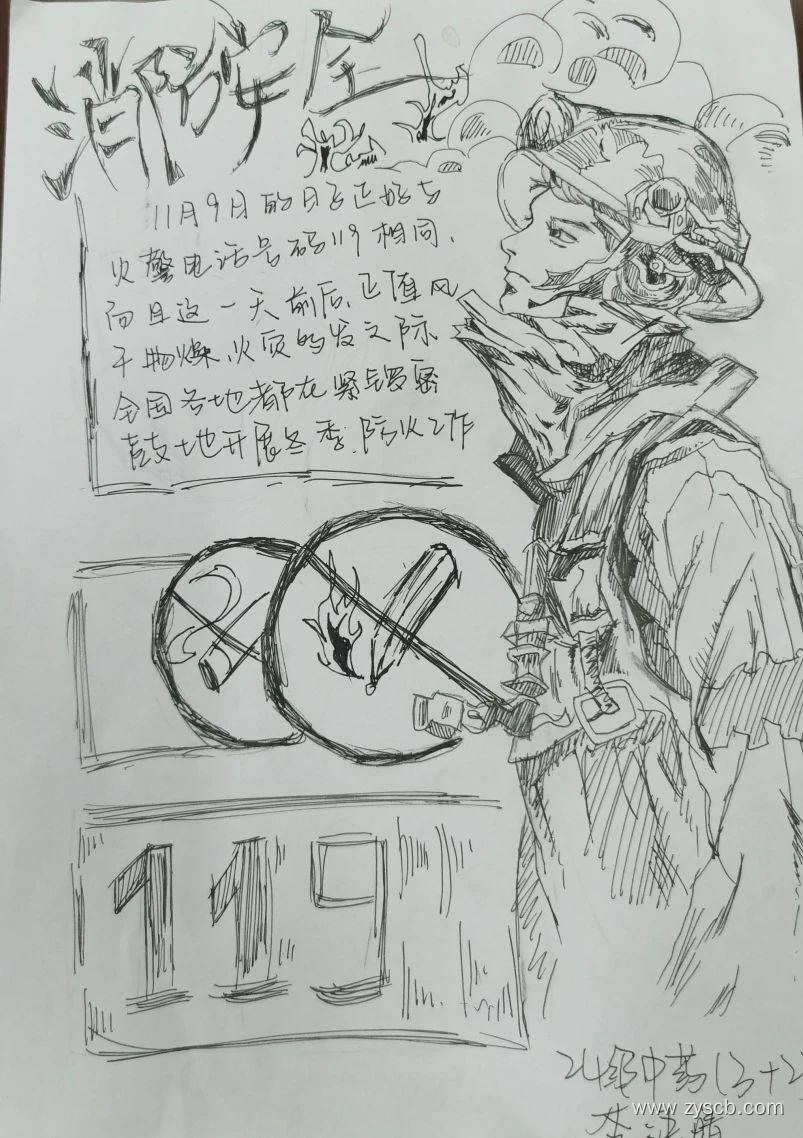 消防安全
11月9日的月日正好与
火警电话号码119相同,
而且这一天前后,正值风
干物燥、火灾的发之际,
全国各地都在紧锣密
鼓地开展冬季防火工作
119
24级中药(3+2
www.zyscb.com